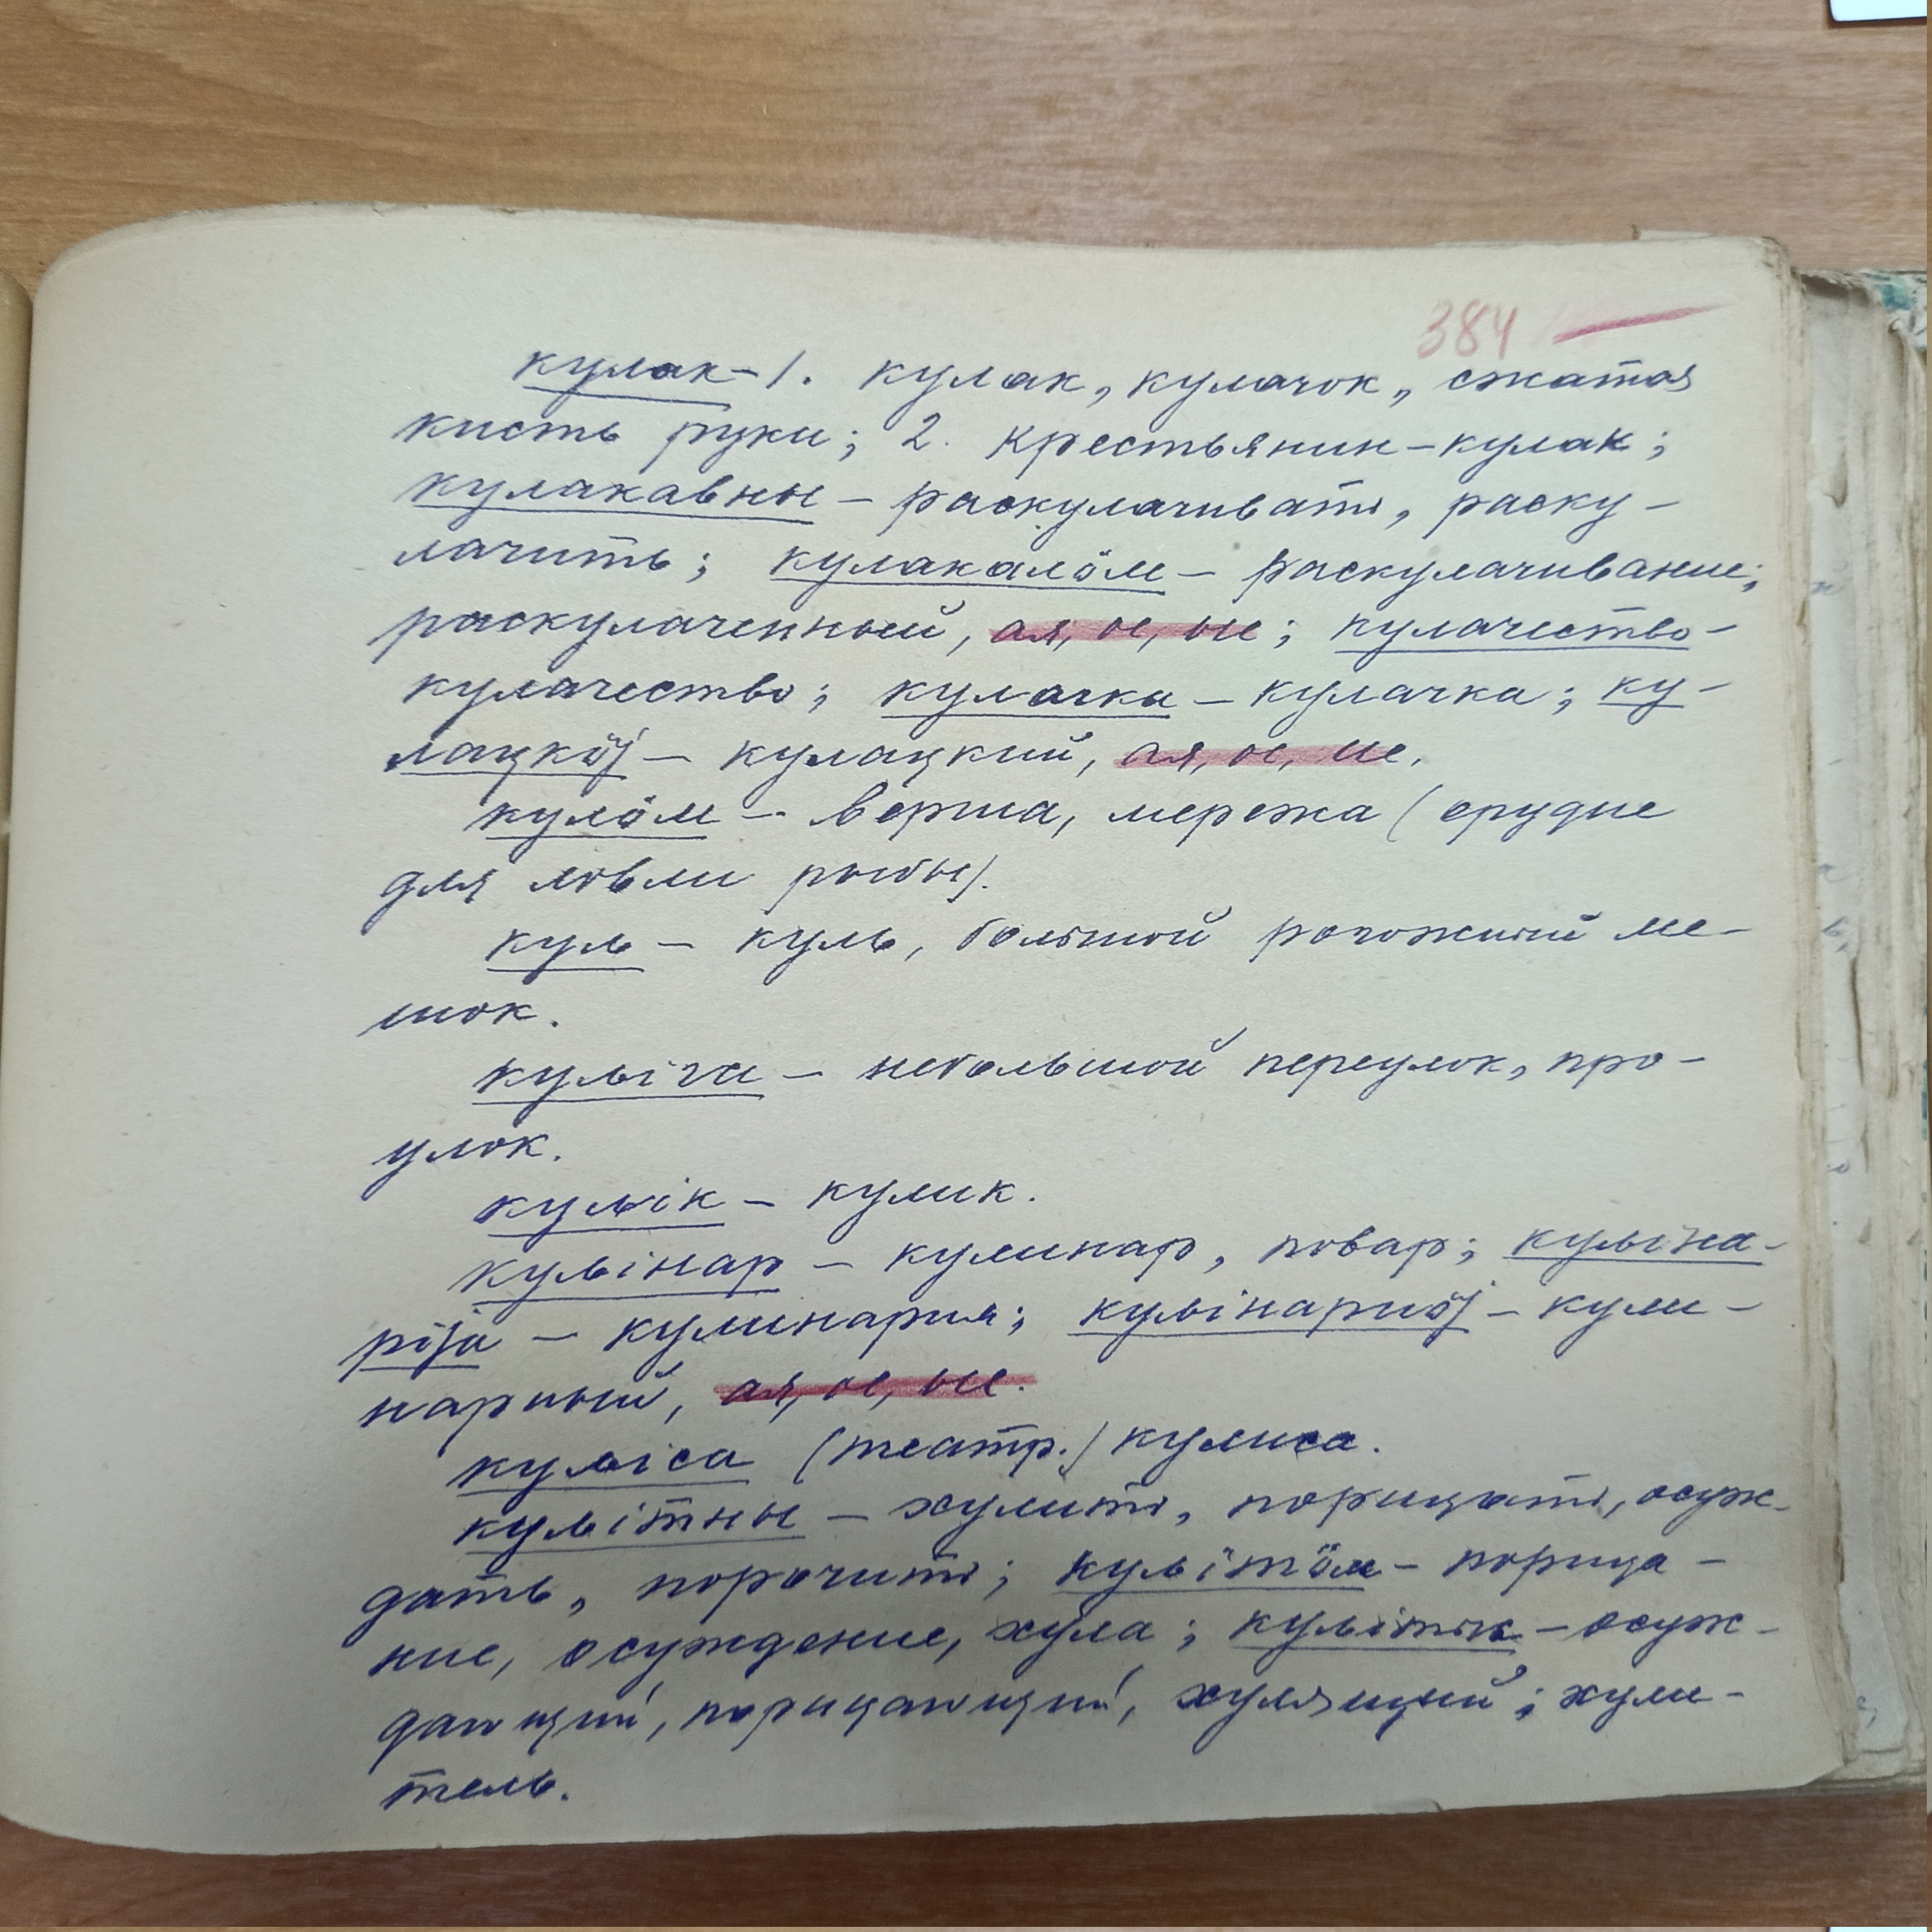 384
кулак – 1. кулак, кулачок, сжатая
кисть руки; 2. крестьянин–кулак;
кулакавны – раскулачивать, раску–
лачить; кулакалӧм – раскулачивание;
раскулаченный, ая, ое, ые; кулачество–
кулачество; кулачка – кулачка; ку–
лацкӧј – кулацкий, ая, ое, ие.
кулӧм – верша, мережа (орудие
для ловли рыбы).
куль – куль, большой рогожный ме–
шок.
кульіга – небольшой переулок, про–
улок.
кульік – кулик.
кульінар – кулинар, повар; кульіна–
ріја – кулинария; кульінарнӧј – кули–
нарный, ая, ое, ые.
кульіса (театр.) кулиса.
кульітны – хулить, порицать, осуж–
дать, порочить; кульітӧм – порица–
ние, осуждение, хула; кульітыс – осуж–
дающий, порицающий, хулящий; хули–
тель.